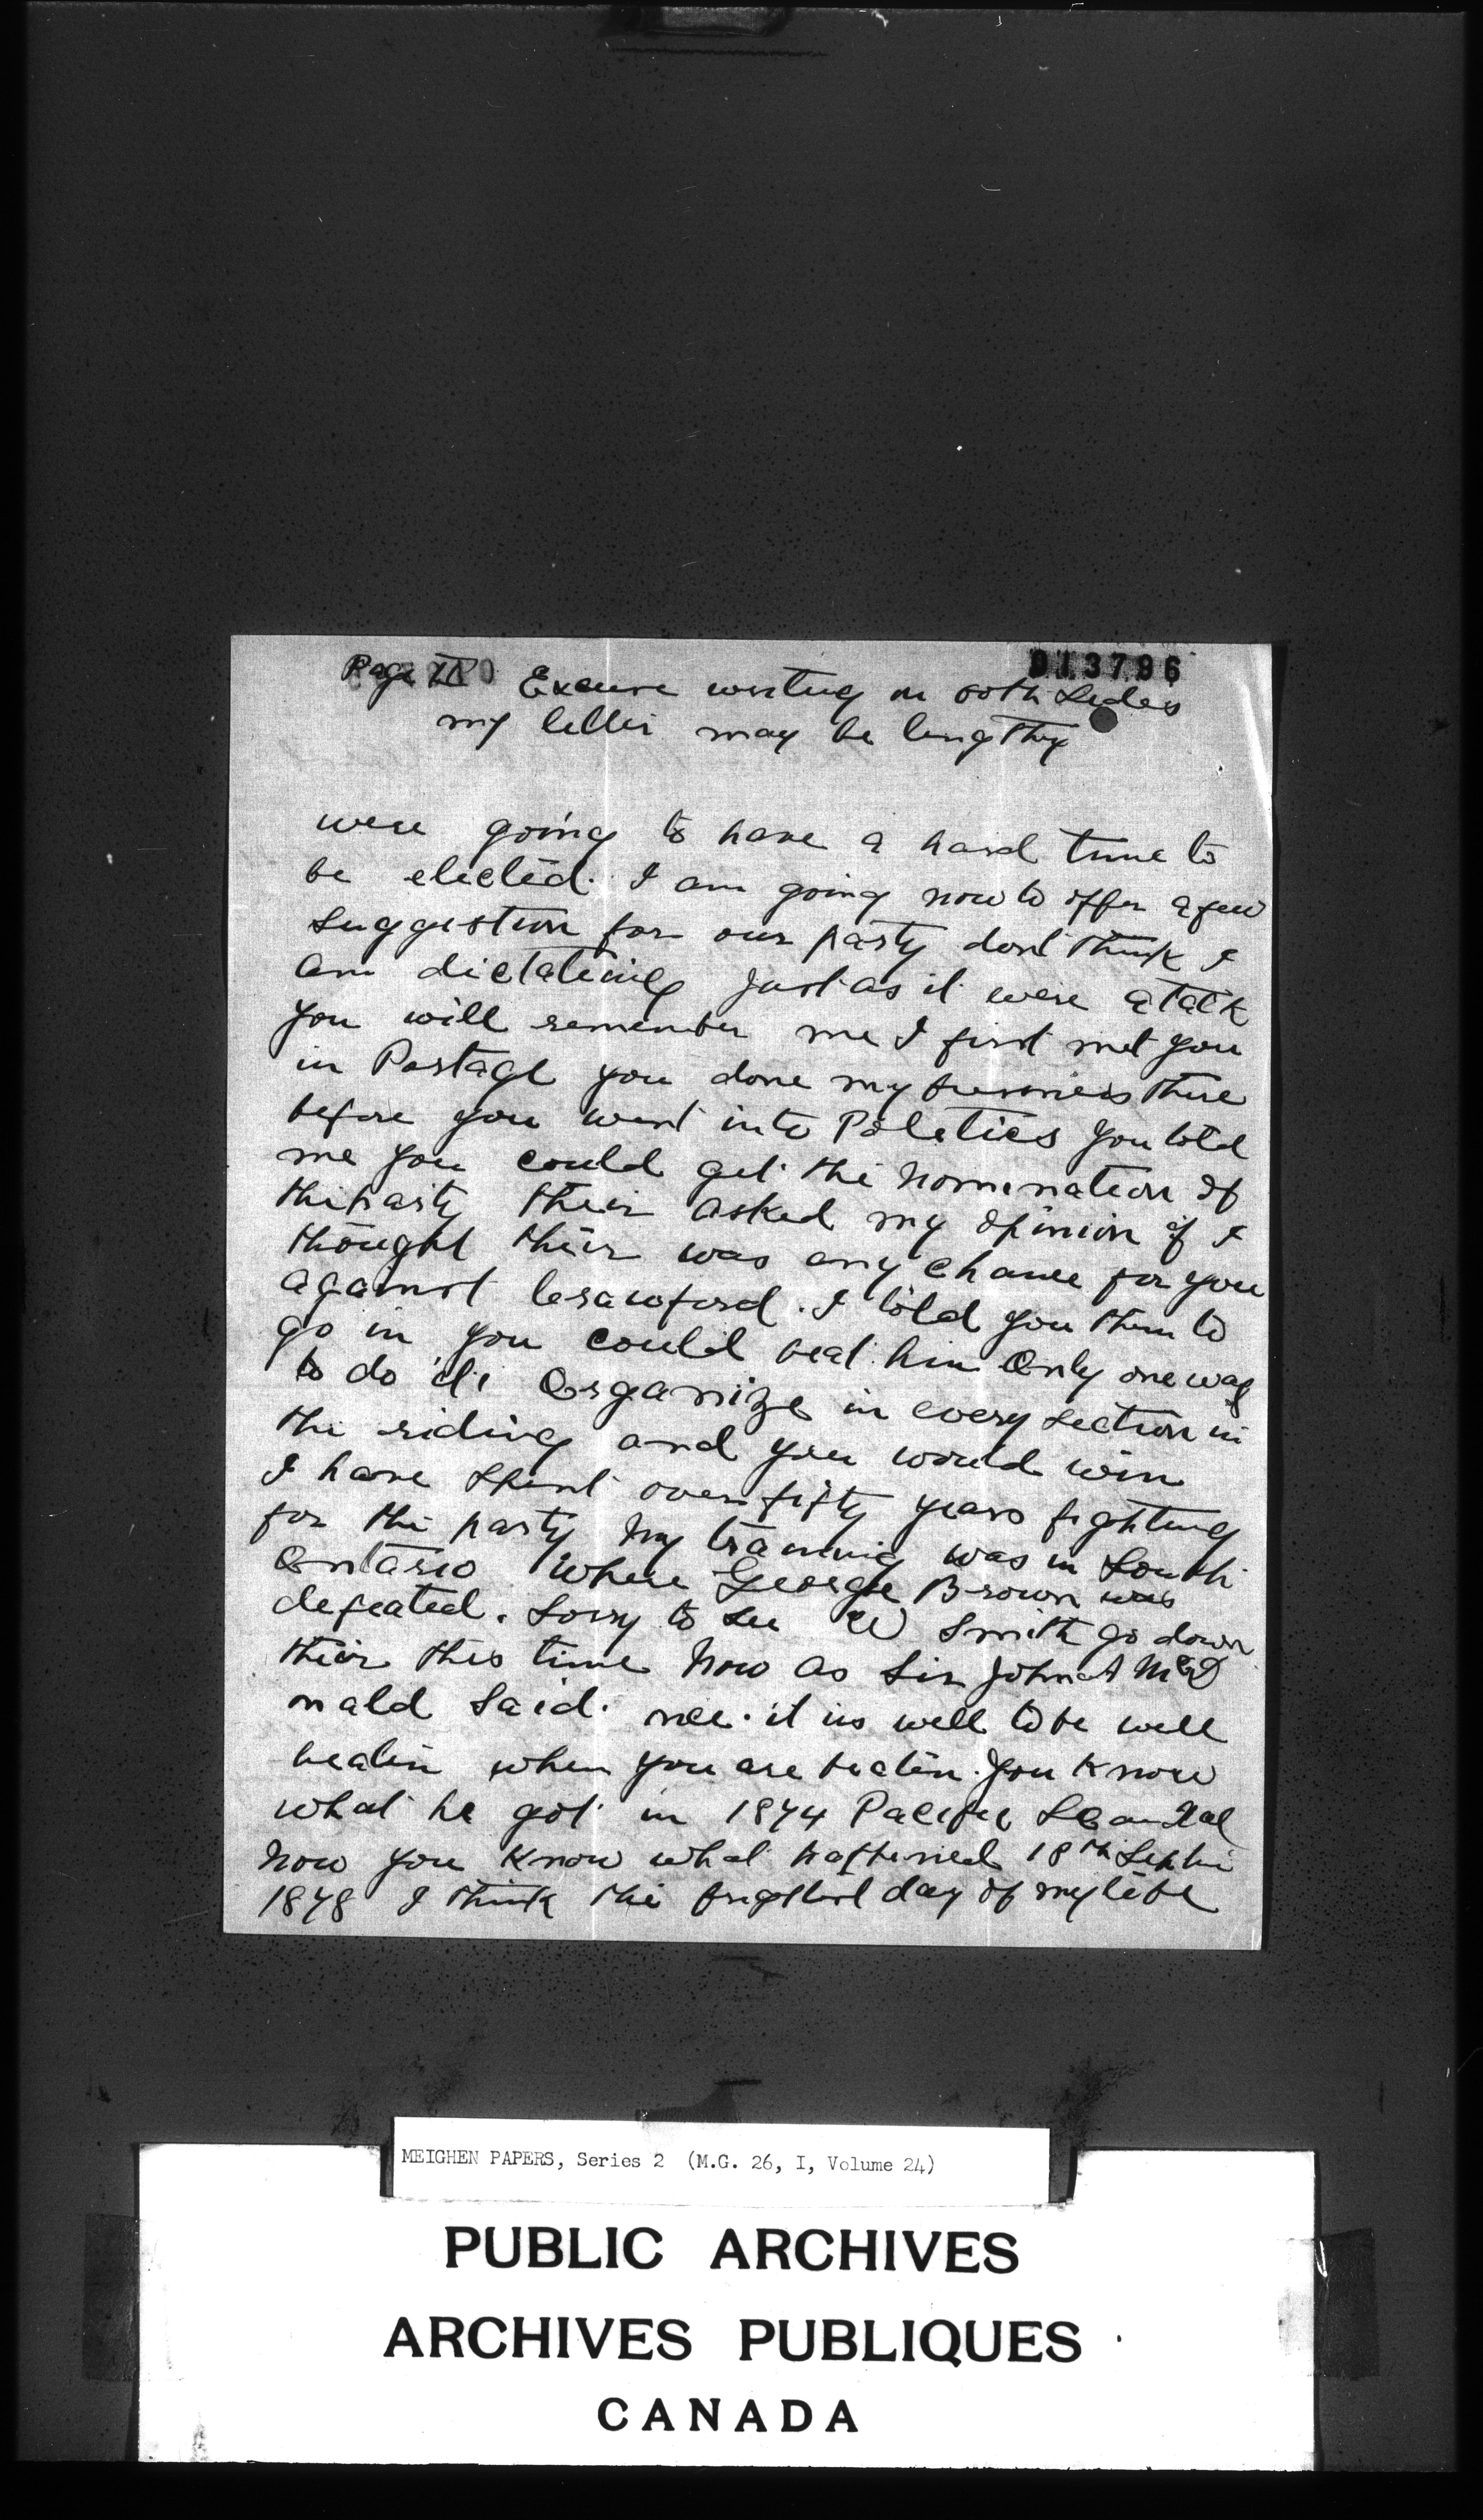 Page II
013796
Excuse writing on both Sides
my letter may be lengthy
were going to have a hard time to
be elected. I am going now to offer a few
Suggestion for our party dont think I
am dictating just as it were a talk
you will remember me I first met you
in Portage you done my business there
before you went into Politics you told
me you could get the nomination of
the party their asked my opinion if I
thought their was any chance for you
against Crawford. I told you then to
go in you could beat him Only one way
to do it. Organize in every Section in
the riding and you would win
I have Spent over fifty years fighting
for the party My training was in South
Ontario where George Brown was
defeated. Sorry to See W Smith go down
their this time Now as Sir John A McD
onald Said. it is well to be well
beaten when you are beaten. You know
what he got in 1874 Pacific Scandal
Now you know what happened 18th Septm
1878 I think the brightest day of my life
MEIGHEN PAPERS, Series 2 (M.G. 26, I, Volume 24)
PUBLIC ARCHIVES
ARCHIVES PUBLIQUES
CANADA